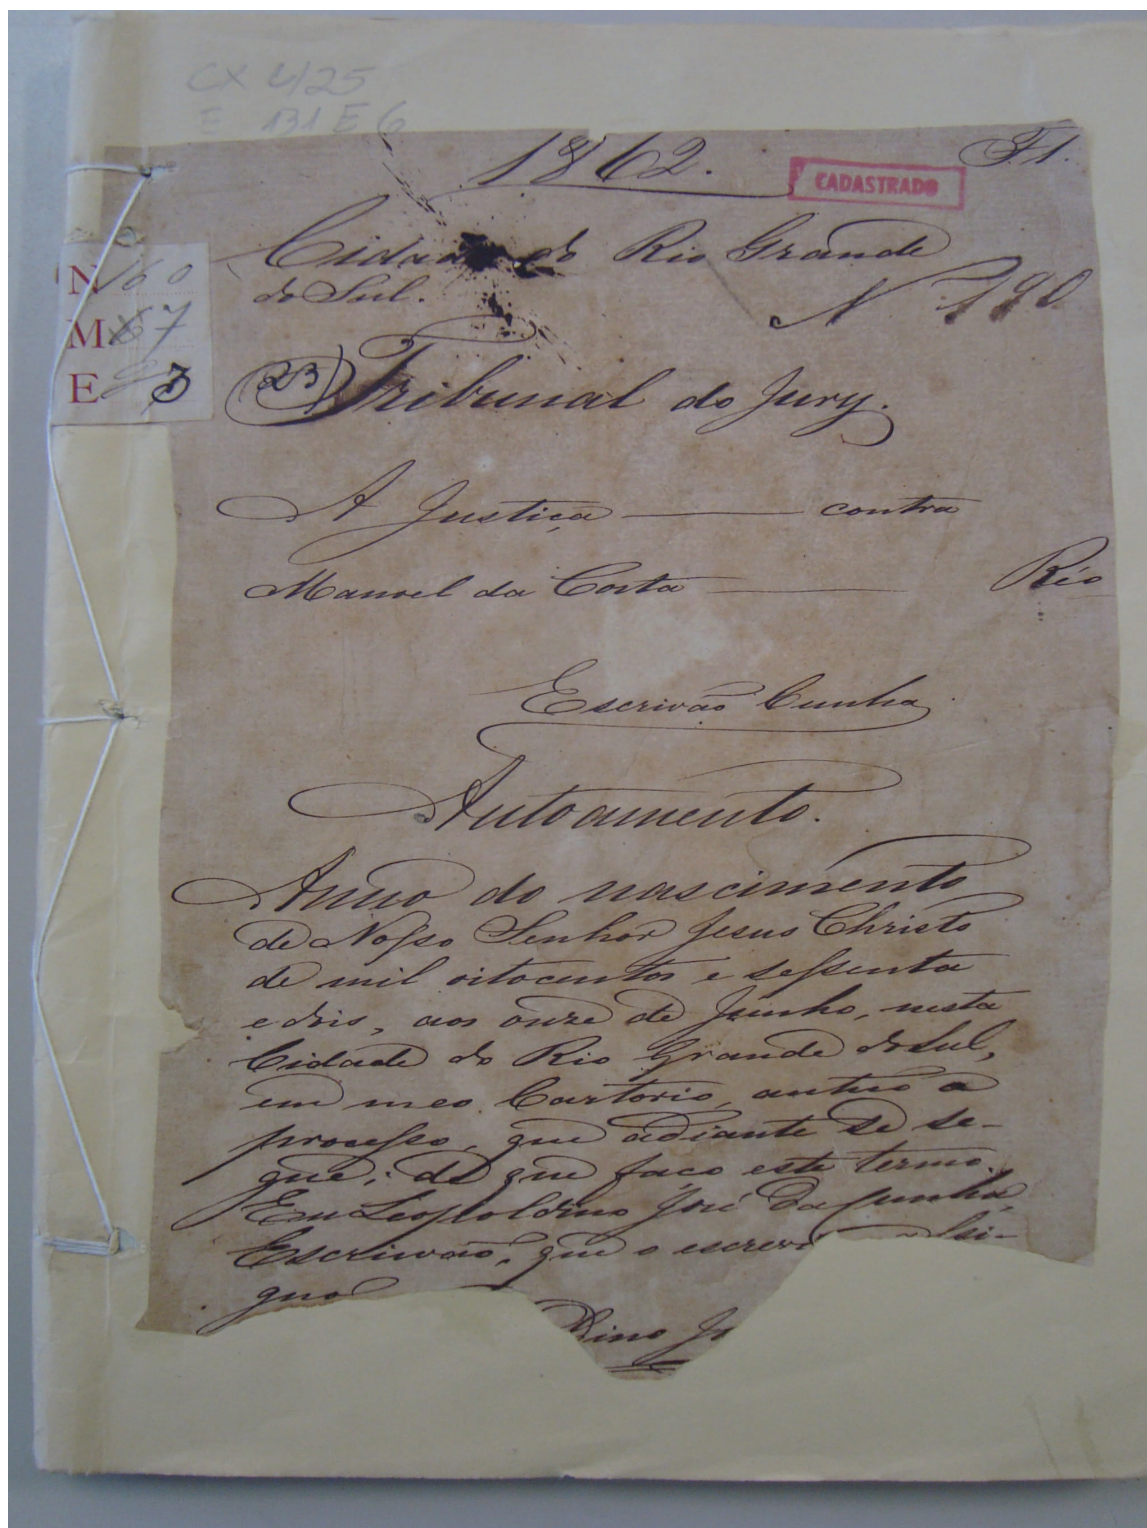 CX 4/25
E 131 E 6
1862.
F1.
CADASTRADO
Cidade do Rio Grande
do Sul.
N 190
N 160
M 67
E 3
23
Tribunal do Jury.
A Justiça — contra
Manoel da Costa — Réo
Escrivão Cunha
Autoamento.
Anno do nascimento
de Nosso Senhor Jesus Christo
de mil oitocentos e sessenta
e dois, aos onze de Junho, nesta
Cidade do Rio Grande do Sul,
em meo Cartorio, autuo o
processo, que adiante se se-
gue; do que faço este termo.
Eu Leopoldino José da Cunha,
Escrivão, que o escrevi assi-
gno
dino Jo